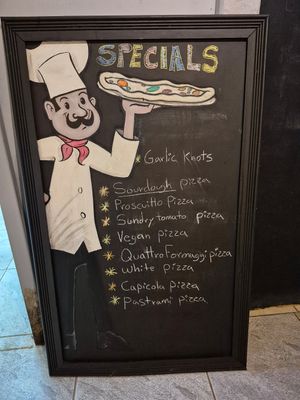 SPECIALS
Garlic Knots
Sourdough pizza
Proscuitto Pizza
Sundrytomato pizza
Vegan pizza
Quattro Formaggi pizza
White pizza
Capicola pizza
Pastrami pizza